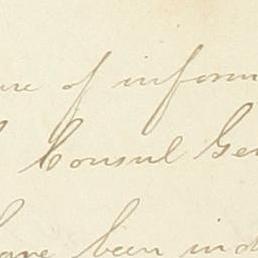 of inform
Consul Gen
have been ind